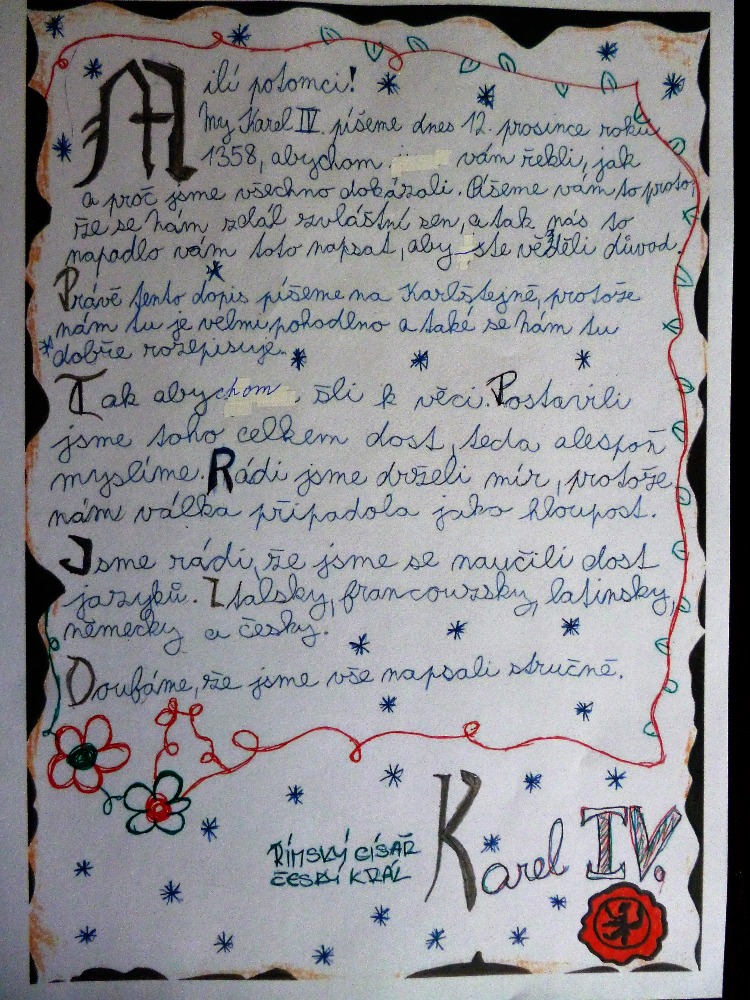 Milí potomci!
My Karel IV. píšeme dnes 12. prosince roku
1358, abychom vám řekli, jak
a proč jsme všechno dokázali. Píšeme vám to proto,
že se nám zdál zvláštní sen, a tak nás to
napadlo vám toto napsat, aby ste věděli důvod.
Právě tento dopis píšeme na Karlštejně, protože
nám tu je velmi pohodlno a také se nám tu
dobře rozepisuje.
Tak abychom šli k věci. Postavili
jsme toho celkem dost, teda alespoň
myslíme. Rádi jsme drželi mír, protože
nám válka připadola jako hloupost.
Jsme rádi, že jsme se naučili dost
jazyků. Italsky, francouzsky, latinsky,
německy a česky.
Doufáme, že jsme vše napsali stručně.
ŘÍMSKÝ CÍSAŘ
ČESKÝ KRÁL
Karel IV.